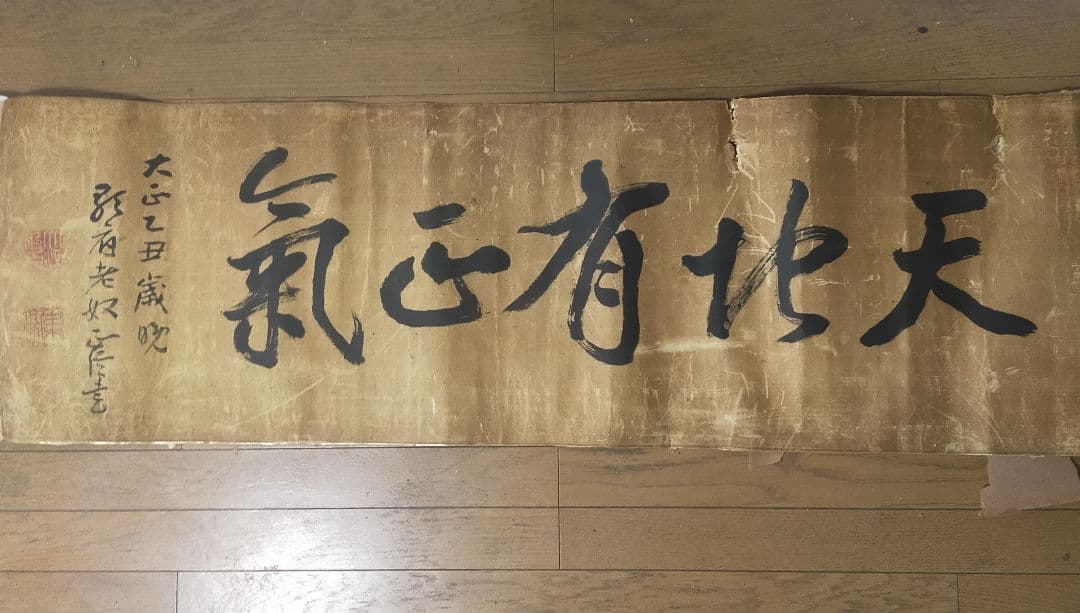 天地有正氣
大正乙丑歳晩
老奴 書